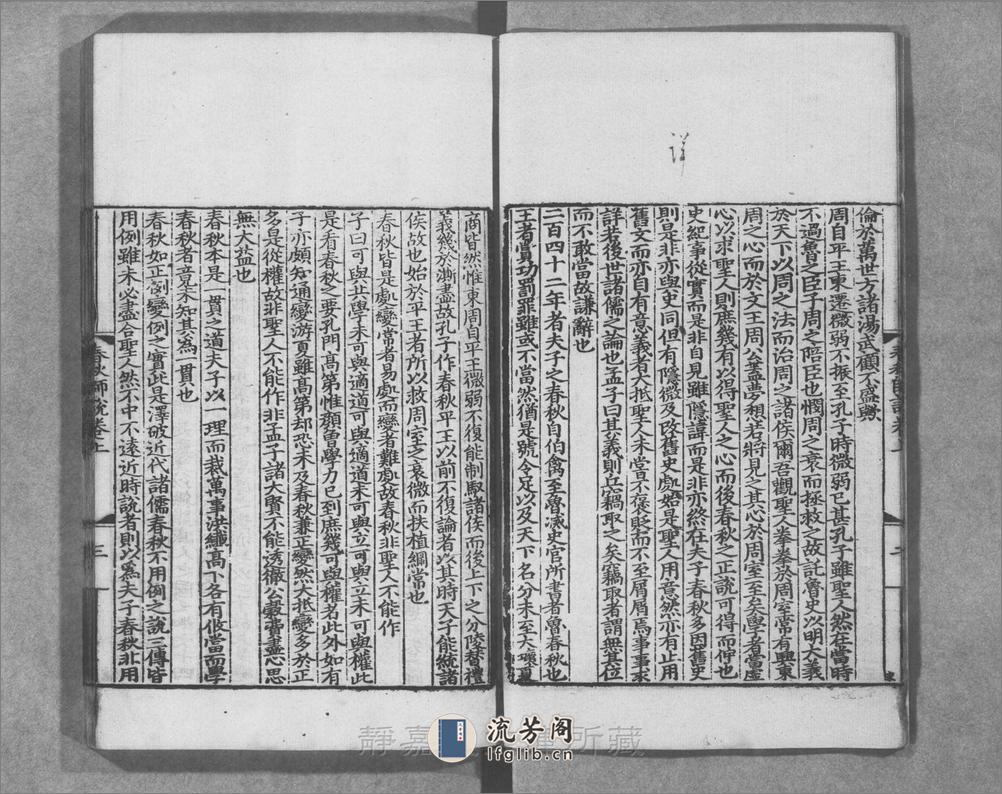 倫於萬世方諸湯武顧不盛歟
周自平王東遷微弱不振至孔子時微弱已甚孔子雖聖人然在當時
不過魯之臣子周之陪臣也憫周之衰而拯救之故託魯史以明大義
於天下以周之法而治周之諸侯爾吾觀聖人拳拳於周室常有興東
周之心而於文王周公盖夢想若將見之其心於周室至矣學者當虛
心以求聖人則庶幾有以得聖人之心而後春秋之正說可得而伸也
史紀事從實而是非自見雖隱諱而是非亦終在夫子春秋多因舊史
則是非亦與史同但有隱微及改舊史處始是聖人用意然亦有止用
舊文而亦自有意義者大抵聖人未嘗不褒貶而不至屑屑焉事事求
詳若後世諸儒之論也孟子曰其義則丘竊取之矣竊取者謂無其位
而不敢當故謙辭也
二百四十二年者夫子之春秋自伯禽至魯滅史官所書者魯春秋也
王者賞功罰罪雖或不當然猶是號令足以及天下名分未至大壞夏
商皆然惟東周自平王微弱不復能制馭諸侯而後上下之分陵替禮
義幾於漸盡故孔子作春秋平王以前不復論者以其時天子能統諸
侯故也始於平王者所以救周室之衰微而扶植綱常也
春秋皆是處變常者易處而變者難處故春秋非聖人不能作
子曰可與共學未可與適道可與適道未可與立可與立未可與權此
是看春秋之要孔門高弟惟顏曾學力已到庶幾可與權者此外如有
子亦頗知通變游夏雖高第却恐未及春秋兼正變然大抵變多於正
多是從權故非聖人不能作非孟子諸大賢不能透徹公穀費盡心思
無大益也
春秋本是一貫之道夫子以一理而裁萬事洪纖高下各有攸當而學
春秋者竟未知其為一貫也
春秋如正例變例之實此是澤破近代諸儒春秋不用例之說三傳皆
用例雖未必盡合聖人然不中不遠近時說者則以為夫子春秋非用
春秋師說卷上
三
詳
流芳阁
lfglib.cn
静嘉
所藏